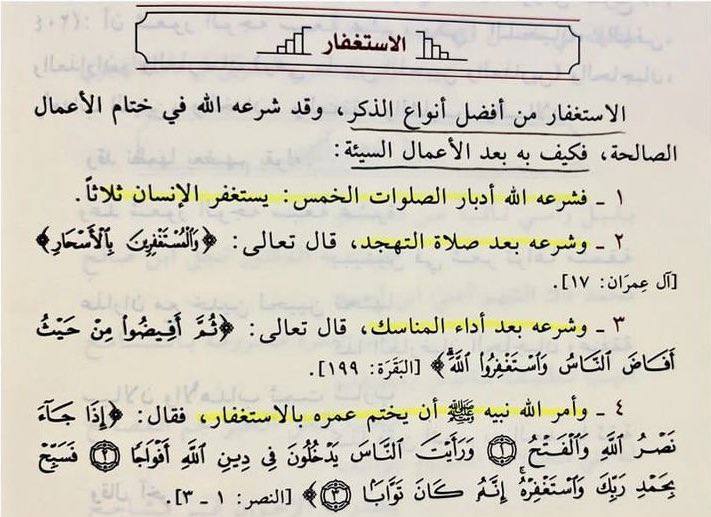 الاستغفار
الاستغفار من أفضل أنواع الذكر، وقد شرعه الله في ختام الأعمال
الصالحة، فكيف به بعد الأعمال السيئة:
١ - فشرعه الله أدبار الصلوات الخمس: يستغفر الإنسان ثلاثاً.
٢ - وشرعه بعد صلاة التهجد، قال تعالى: ﴿وَالْمُسْتَغْفِرِينَ بِالْأَسْحَارِ﴾
[آل عِمرَان: ١٧].
٣ - وشرعه بعد أداء المناسك، قال تعالى: ﴿ثُمَّ أَفِيضُوا مِنْ حَيْثُ
أَفَاضَ النَّاسُ وَاسْتَغْفِرُوا اللَّهَ﴾ [البَقَرَة: ١٩٩].
٤ - وأمر الله نبيه ﷺ أن يختم عمره بالاستغفار، فقال: ﴿إِذَا جَاءَ
نَصْرُ اللَّهِ وَالْفَتْحُ ١ وَرَأَيْتَ النَّاسَ يَدْخُلُونَ فِي دِينِ اللَّهِ أَفْوَاجًا ٢ فَسَبِّحْ
بِحَمْدِ رَبِّكَ وَاسْتَغْفِرْهُ إِنَّهُ كَانَ تَوَّابًا ٣﴾ [النصر: ١ - ٣].